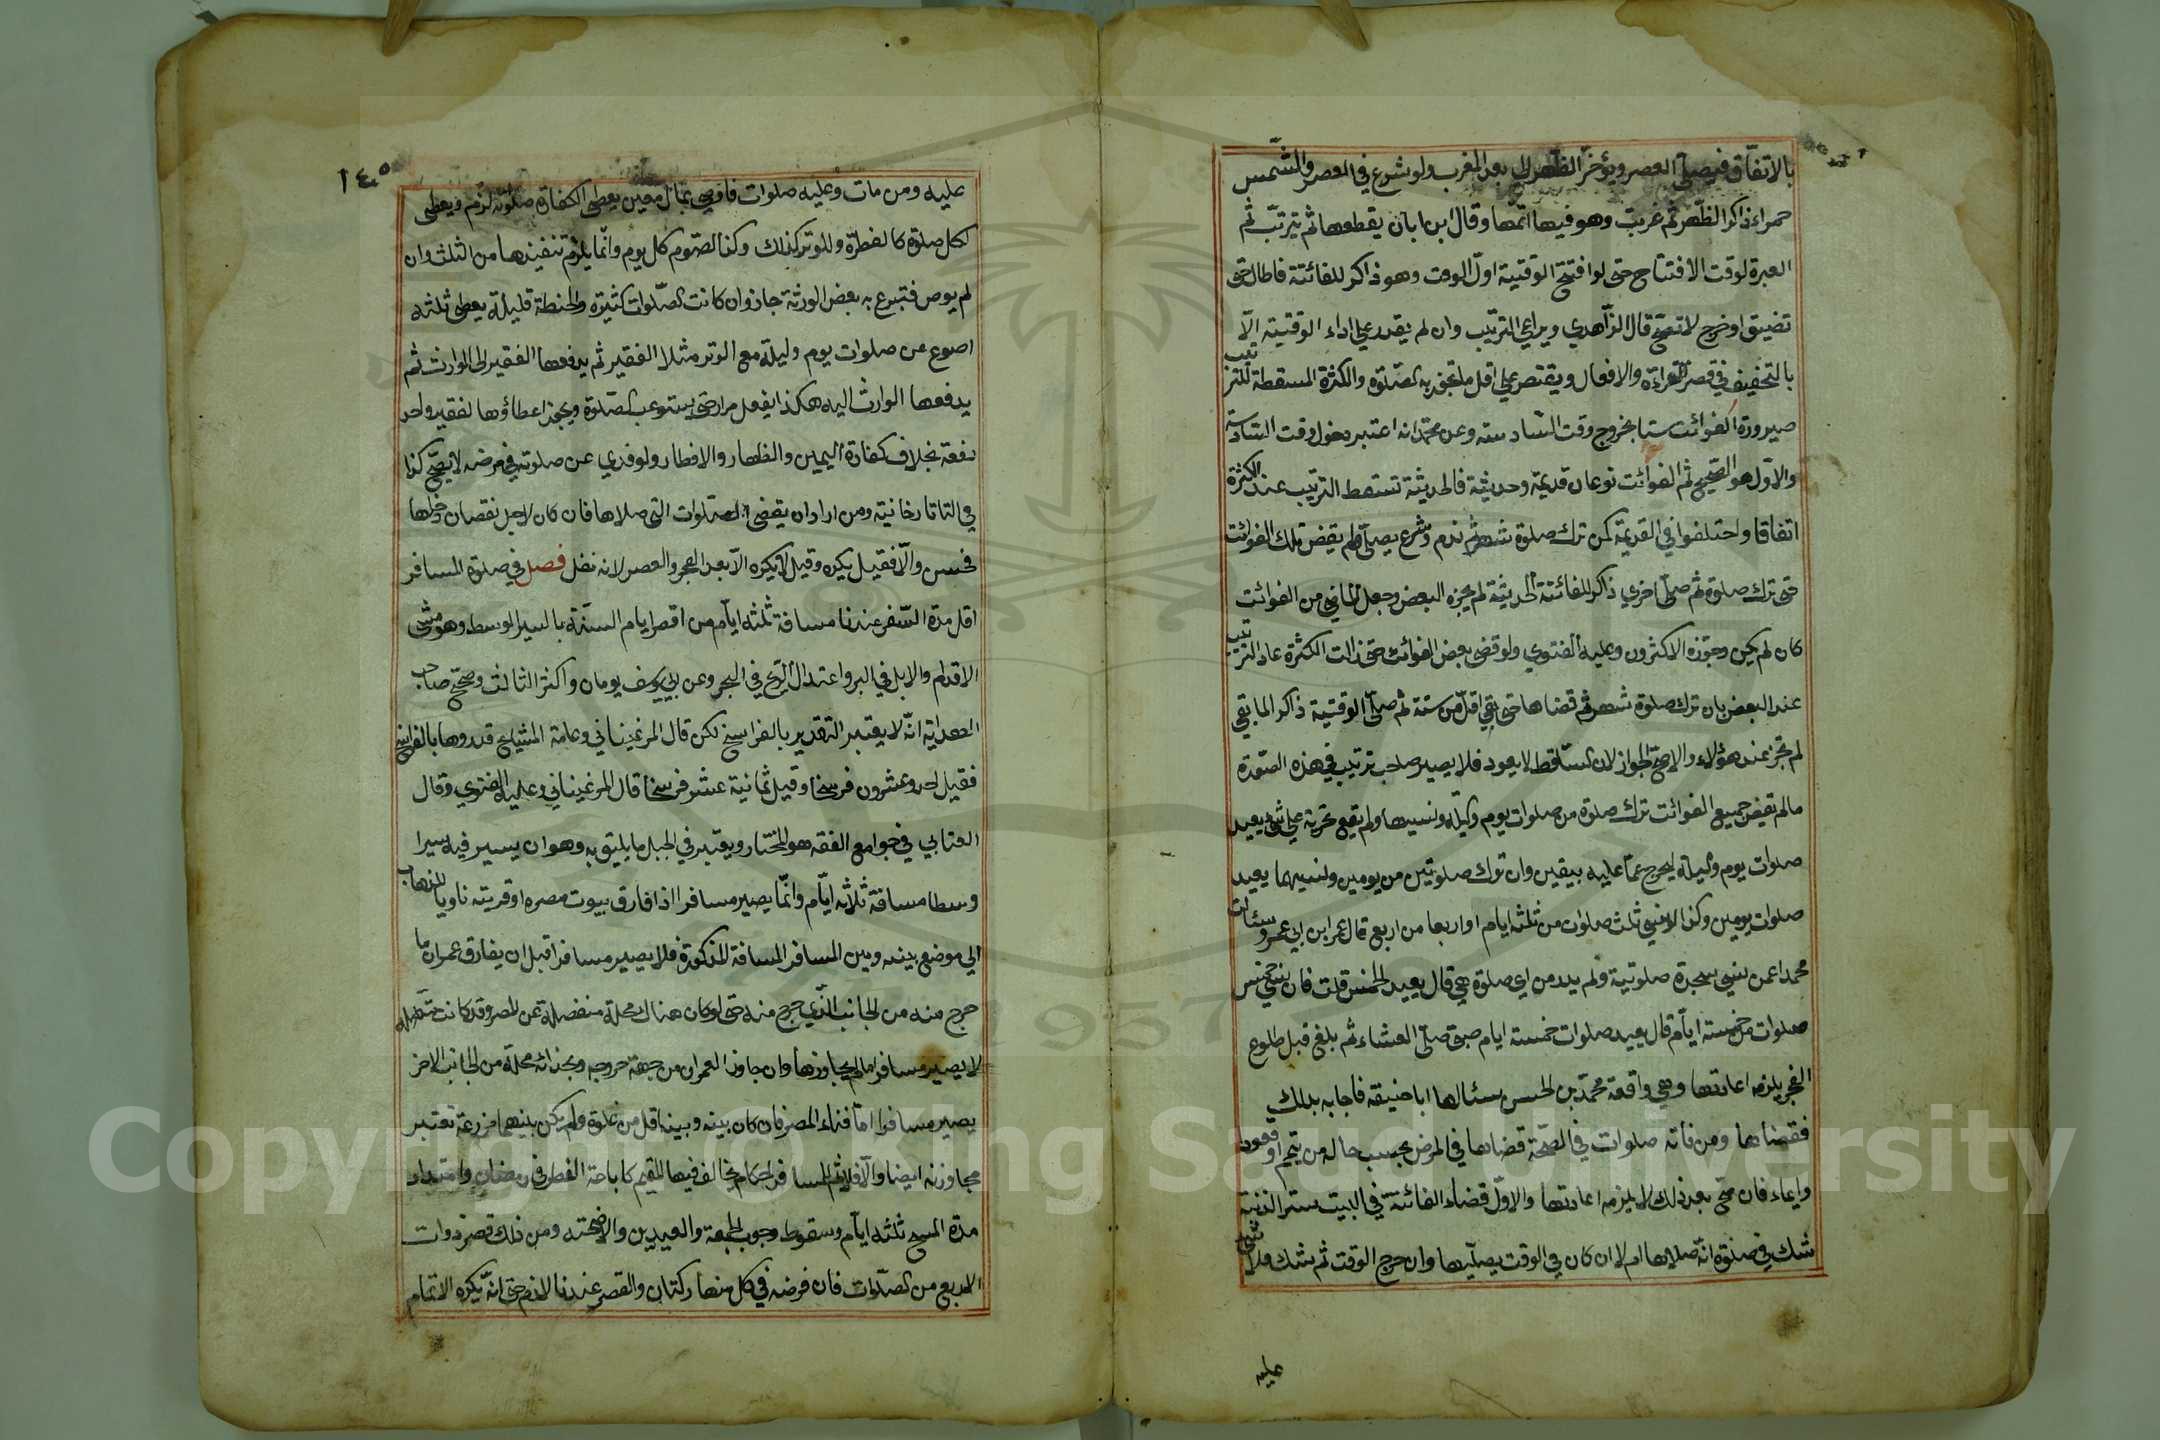 بالاتفاق فيصلى العصر ويؤخر الظهر الى بعد المغرب ولو شرع في العصر والشمس
حمراء ذاكر الظهر ثم غربت وهو فيها اتمها وقال ابن ابان يقطعها ثم يترتب ثم
العبرة لوقت الافتتاح حتى لو افتتح الوقتية اول الوقت وهو ذاكر للفائتة فاطال حتى
تضيق او خرج لا تصح قال الزاهدي ويراعي الترتيب وان لم يقدر على اداء الوقتية الا
بالتخفيف في قصر القراءة والافعال ويقتصر على اقل ما تجوز به الصلوة والكثرة المسقطة للترتيب
صيرورة الفوائت ستا بخروج وقت السادسة وعن محمد انه اعتبر دخول وقت السادسة
والاول هو الصحيح ثم الفوائت نوعان قديمة وحديثة فالحديثة تسقط الترتيب عند الكثرة
اتفاقا واختلفوا في القديمة كمن ترك صلوة شهر ثم ندم وشرع يصلي ولم يقض تلك الفوائت
حتى ترك صلوة ثم صلى اخرى ذاكر للفائتة الحديثة لم يجزه البعض وجعل الماضي من الفوائت
كان لم يكن وجوزه الاكثرون وعليه الفتوى ولو قضى بعض الفوائت حتى زالت الكثرة عاد الترتيب
عند البعض بان ترك صلوة شهر ثم قضاها حتى بقي اقل من ستة ثم صلى الوقتية ذاكر لما بقي
لم تجز عند هؤلاء والاصح الجواز لان الساقط لا يعود فلا يصير صاحب ترتيب في هذه الصورة
ما لم تقض جميع الفوائت ترك صلوة من صلوات يوم وليلة ونسيها ولم يقع تحرية على شئ يعيد
صلوات يوم وليلة ليخرج عما عليه بيقين وان ترك صلوتين من يومين ونسيهما يعيد
صلوات يومين وكذا لو نسي ثلث صلوات من ثلثة ايام او اربعا من اربع قال عمر ابن ابي عمرو سئلت
محمدا عمن نسي سجدة صلوتية ولم يدر من اي صلوة هي قال يعيد الخمس قلت فان نسي خمس
صلوات من خمسة ايام قال يعيد صلوات خمسة ايام صبي صلى العشاء ثم بلغ قبل طلوع
الفجر يلزمه اعادتها وهي واقعة محمد بن الحسن سئالها ابا حنيفة فاجابه بذلك
فقضاها ومن فاته صلوات في الصحة قضاها في المرض بحسب حاله من تيمم او قعود
وايماء فان صح بعد ذلك لا يلزمه اعادتها والاولى قضاء الفائتة في البيت ستر الذنبه
شك في صلوة انه صلاها ام لا ان كان في الوقت يصليها وان خرج الوقت ثم شك فلا شئ
عليه
١٤٥
عليه ومن مات وعليه صلوات فاوصى بمال معين يعطى الكفارة صلوته لزم ويعطى
لكل صلوة كالفطرة وللوتر كذلك وكذا لصوم كل يوم وانما يلزم تنفيذها من الثلث وان
لم يوص فتبرع به بعض الورثة جاز وان كانت الصلوات كثيرة والحنطة قليلة يعطى ثلثة
اصوع عن صلوات يوم وليلة مع الوتر مثلا الفقير ثم يدفعها الفقير الى الوارث ثم
يدفعها الوارث اليه هكذا يفعل مرارا حتى يستوعب الصلوة ويجوز اعطاؤها لفقير واحد
دفعة بخلاف كفارة اليمين والظهار والافطار ولو فدى عن صلوته في مرضه لا يصح كذا
في التاتارخانية ومن اراد ان يقضي الصلوات التي صلاها فان كان لاجل نقصان دخلها
فحسن والا فقيل يكره وقيل لا يكره الا بعد الفجر والعصر لانه نفل فصل في صلوة المسافر
اقل مدة السفر عندنا مسافة ثلثة ايام من اقصر ايام السنة بالسير الوسط وهو مشي
الاقدام والابل في البر واعتدال الريح في البحر وعن ابي يوسف يومان واكثر الثالث وصحح صاحب
الهداية انه لا يعتبر التقدير بالفراسخ لكن قال المرغيناني وعامة المشايخ قدروها بالفراسخ
فقيل احد وعشرون فرسخا وقيل ثمانية عشر فرسخا قال المرغيناني وعليه الفتوى وقال
العتابي في جوامع الفقه هو المختار ويعتبر في الجبل ما يليق به وهو ان يسير فيه سيرا
وسطا مسافة ثلاثة ايام وانما يصير مسافرا اذا فارق بيوت مصره او قريته ناويا الذهاب
الى موضع بينه وبين المسافر المسافة المذكورة فلا يصير مسافرا قبل ان يفارق عمران ما
خرج منه من الجانب الذي خرج منه حتى لو كان هناك محلة منفصلة عن المصر وقد كانت متصلة
لا يصير مسافرا ما لم يجاوزها وان جاوز العمران من جهة خروجه وبحذائه محلة من الجانب الاخر
يصير مسافرا اما فناء المصر فان كان بينه وبينه اقل من غلوة ولم يكن بينهما مزرعة تعتبر
مجاوزته ايضا والا فلا ثم للمسافر احكام يخالف فيها المقيم كاباحة الفطر في رمضان وامتداد
مدة المسح ثلثة ايام وسقوط وجوب الجمعة والعيدين والاضحية ومن ذلك قصر ذوات
الاربع من الصلوات فان فرضه في كل منها ركعتان والقصر عندنا لازم حتى انه يكره الاتمام
Copyright © King Saud University
1957